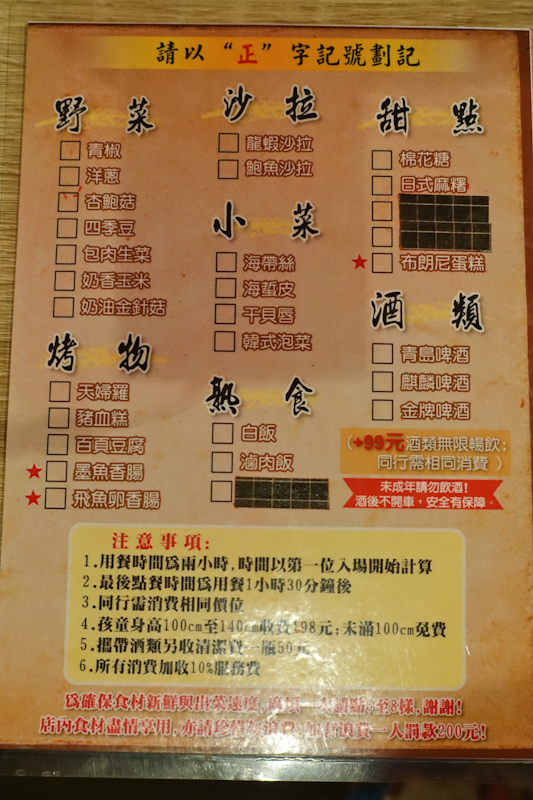 請以“正”字記號劃記
野菜
青椒
洋蔥
杏鮑菇
四季豆
包肉生菜
奶香玉米
奶油金針菇
烤物
天婦羅
豬血糕
百頁豆腐
★墨魚香腸
★飛魚卵香腸
沙拉
龍蝦沙拉
鮑魚沙拉
小菜
海帶絲
海蜇皮
干貝唇
韓式泡菜
熟食
白飯
滷肉飯
甜點
棉花糖
日式麻糬
★布朗尼蛋糕
酒類
青島啤酒
麒麟啤酒
金牌啤酒
(+99元酒類無限暢飲;
同行需相同消費)
未成年請勿飲酒!
酒後不開車,安全有保障。
注意事項:
1.用餐時間為兩小時,時間以第一位入場開始計算
2.最後點餐時間為用餐1小時30分鐘後
3.同行需消費相同價位
4.孩童身高100cm至140cm收費198元;未滿100cm免費
5.攜帶酒類另收清潔費一瓶50元
6.所有消費加收10%服務費
為確保食材新鮮與出菜速度,至8樣,謝謝!
店內食材盡情享用,亦請珍惜一人罰款200元!